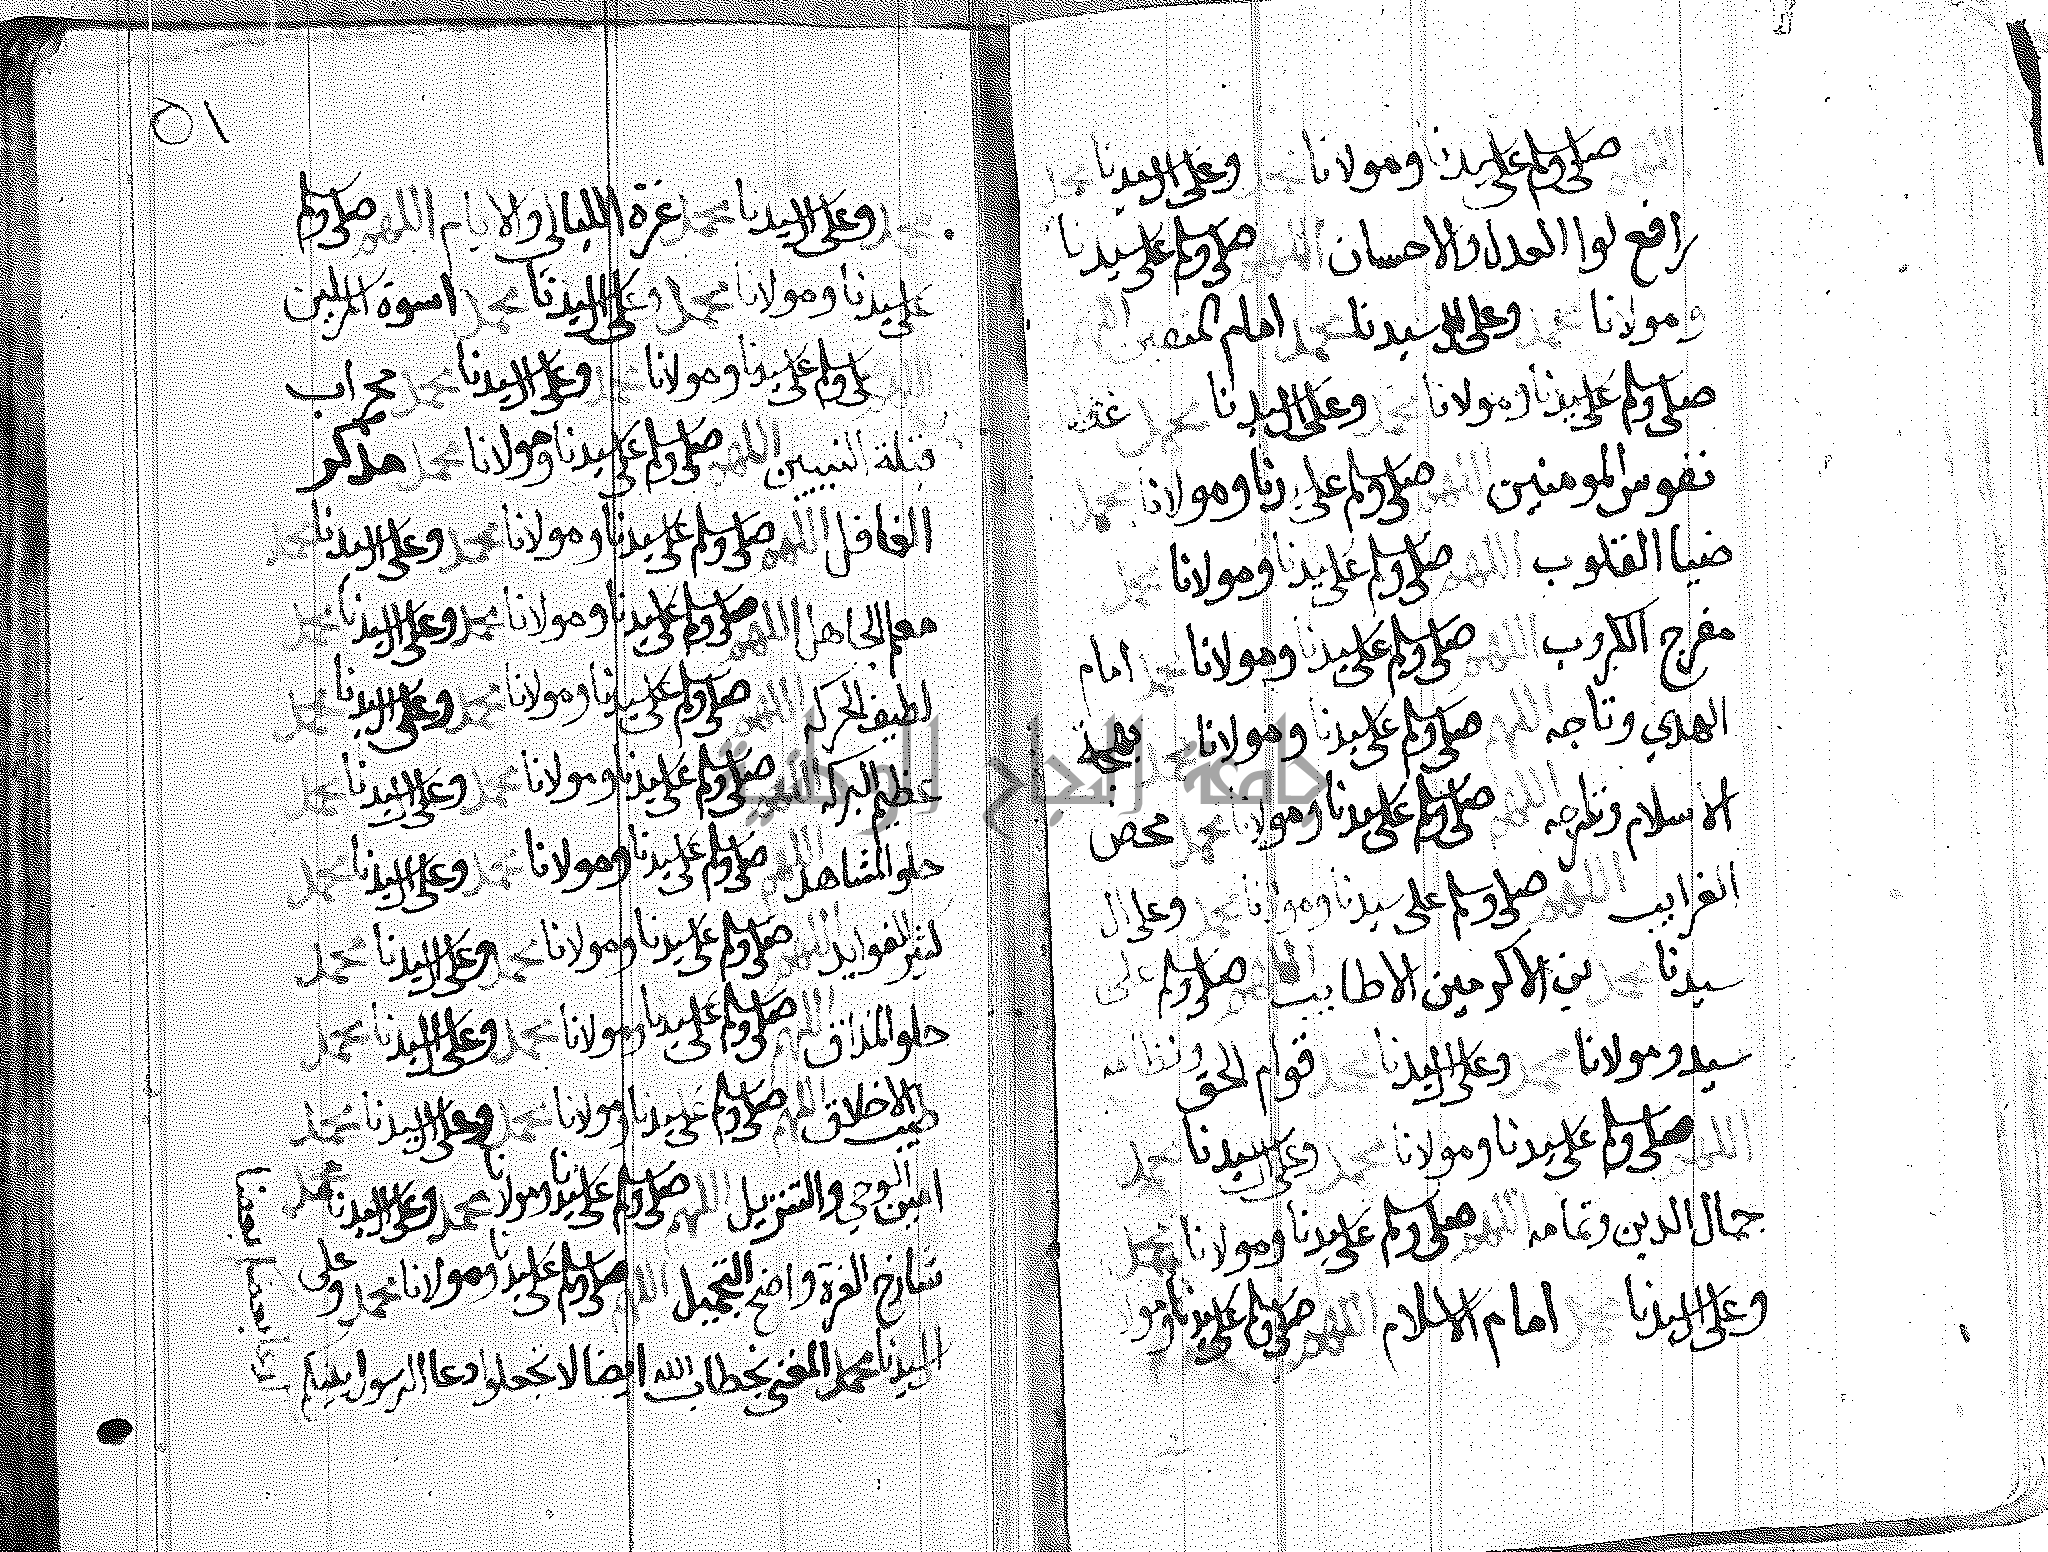 اللهم صلى وسلم على سيدنا ومولانا محمد وعلى ال سيدنا محمد
رافع لوا العدل والاحسان اللهم صلى وسلم على سيدنا
ومولانا محمد وعلى ال سيدنا محمد امام المتقين اللهم
صلى وسلم على سيدنا ومولانا محمد وعلى ال سيدنا محمد
نفوس المومنين اللهم صلى وسلم على سيدنا ومولانا محمد
ضيا القلوب اللهم صلى وسلم على سيدنا ومولانا محمد
مفرج الكروب اللهم صلى وسلم على سيدنا ومولانا محمد امام
الهدي وتاجه اللهم صلى وسلم على سيدنا ومولانا محمد بهجة
الاسلام اللهم صلى وسلم على سيدنا ومولانا محمد محض
الغرايب اللهم صلى وسلم على سيدنا ومولانا محمد وعلى ال
سيدنا محمد بن الاكرمين الاطايب اللهم صلى وسلم على
سيد ومولانا محمد وعلى ال سيدنا محمد قوام الحق ونظامه
اللهم صلى وسلم على سيدنا ومولانا محمد وعلى ال سيدنا محمد
جمال الدين وتمامه اللهم صلى وسلم على سيدنا ومولانا محمد
وعلى ال سيدنا محمد امام الاسلام اللهم صلى وسلم على سيدنا ومولا
٥١
محمد وعلى ال سيدنا محمد غرة الليالي والايام اللهم صلى وسلم
على سيدنا ومولانا محمد وعلى ال سيدنا محمد اسوة المرسلين
اللهم صلى وسلم على سيدنا ومولانا محمد وعلى ال سيدنا محمد محراب
قبلة النبيين اللهم صلى وسلم على سيدنا ومولانا محمد مذكر
الغافل اللهم صلى وسلم على سيدنا ومولانا محمد وعلى ال سيدنا محمد
معلم الجاهل اللهم صلى وسلم على سيدنا ومولانا محمد وعلى ال سيدنا محمد
لطيف الحركه اللهم صلى وسلم على سيدنا ومولانا محمد وعلى ال سيدنا محمد
عظيم البركه اللهم صلى وسلم على سيدنا ومولانا محمد وعلى ال سيدنا محمد
حلو المشاهد اللهم صلى وسلم على سيدنا ومولانا محمد وعلى ال سيدنا محمد
كثير الفوايد اللهم صلى وسلم على سيدنا ومولانا محمد وعلى ال سيدنا محمد
حلو المذاق اللهم صلى وسلم على سيدنا ومولانا محمد وعلى ال سيدنا محمد
طيب الاخلاق اللهم صلى وسلم على سيدنا ومولانا محمد وعلى ال سيدنا محمد
امين الوحي والتنزيل اللهم صلى وسلم على سيدنا ومولانا محمد وعلى ال سيدنا محمد
شادخ الغرة واضح التحجيل اللهم صلى وسلم على سيدنا ومولانا محمد وعلى
ال سيدنا محمد المغني بخطاب الله ايضا لا تجعلوا دعا الرسول بينكم
كدعا بعضكم بعضا
جامعة النجاح الوطنية